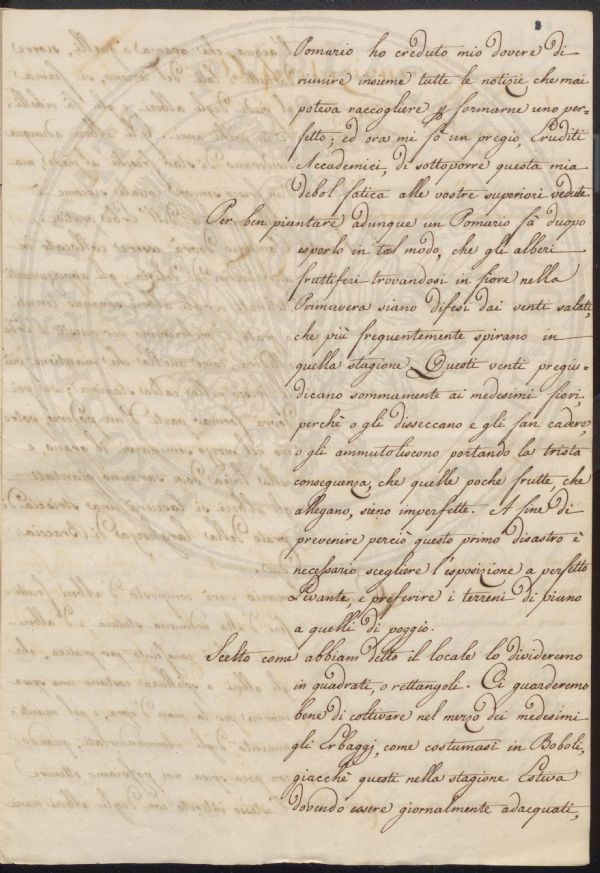 Pomario ho creduto mio dovere di
riunire insieme tutte le notizie che mai
poteva raccogliere p formarne uno per-
fetto; ed ora mi fò un pregio, Eruditi
Accademici, di sottoporre questa mia
debol fatica alle vostre superiori vedute.
Per ben piantare adunque un Pomario fà duopo
esporlo in tal modo, che gli alberi
fruttiferi trovandosi in fiore nella
Primavera siano difesi dai venti salati,
che più frequentemente spirano in
quella stagione. Questi venti pregiu-
dicano sommamente ai medesimi fiori,
perchè o gli disseccano e gli fan cadere,
o gli ammutoliscono portando la trista
conseguenza, che quelle poche frutte, che
allegano, sieno imperfette. A fine di
prevenire perciò questo primo disastro è
necessario scegliere l'esposizione a perfetto
Levante, e preferire i terreni di piano
a quelli di poggio.
Scelto come abbiam detto il locale lo divideremo
in quadrati, o rettangoli. Ci guarderemo
bene di coltivare nel mezzo dei medesimi
gli Erbaggj, come costumasi in Boboli,
giacchè questi nella stagione Estiva
dovendo essere giornalmente adacquati,